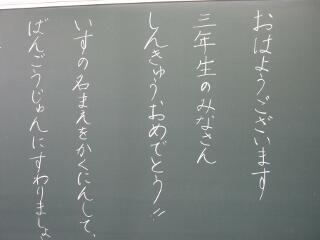 おはようございます
三年生のみなさん
しんきゅうおめでとう!!
いすの名まえをかくにんして、
ばんごうじゅんにすわりましょ